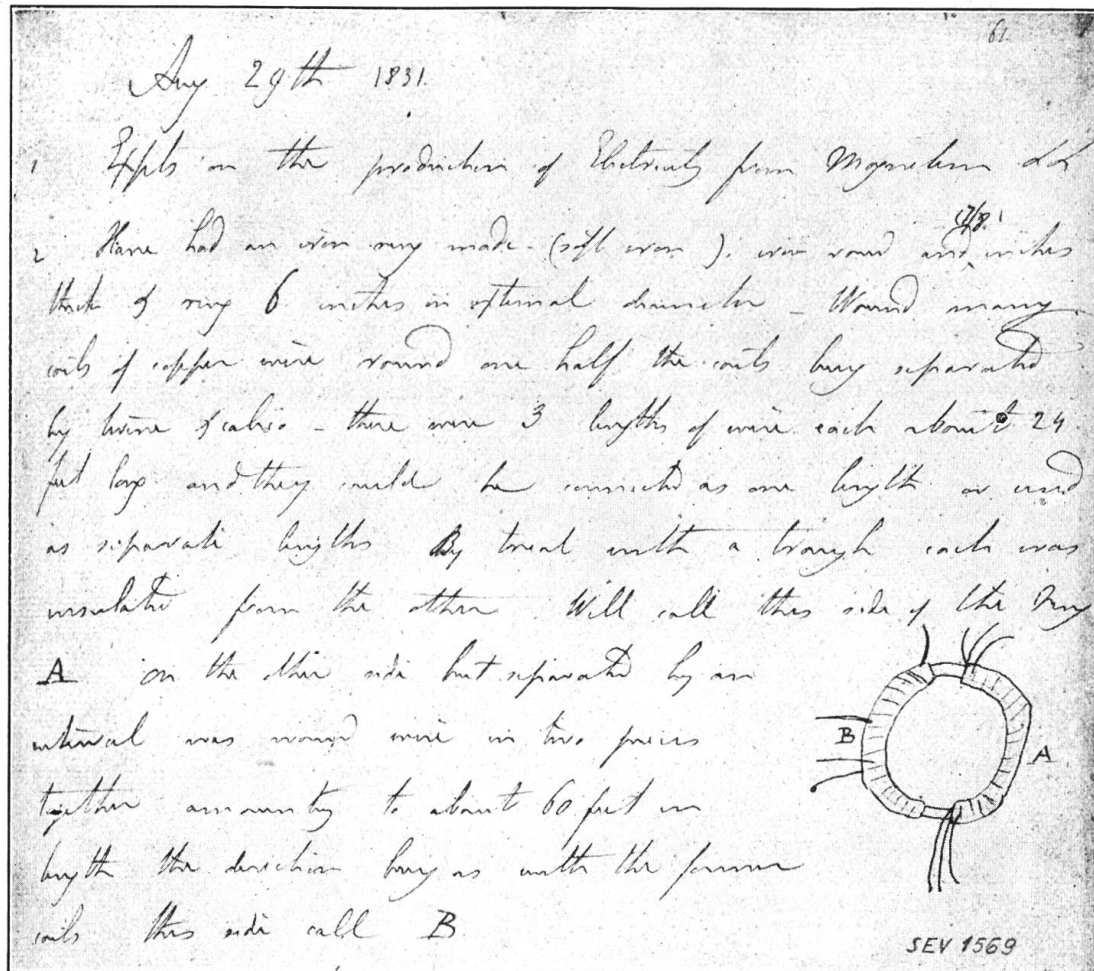 61
Aug 29th 1831.
1 Expts on the production of Electricity from Magnetism &c &c
2 Have had an iron ring made (soft iron), iron round and 7/8 inches
thick & ring 6 inches in external diameter - Wound many
coils of copper wire round one half the coils being separated
by twine & calico - there were 3 lengths of wire each about 24
feet long and they could be connected as one length or used
as separate lengths By trial with a trough each was
insulated from the other Will call this side of the Ring
A on the other side but separated by an
interval was wound wire in two pieces
together amounting to about 60 feet in
length the direction being as with the former
coils this side call B
B
A
SEV 1569